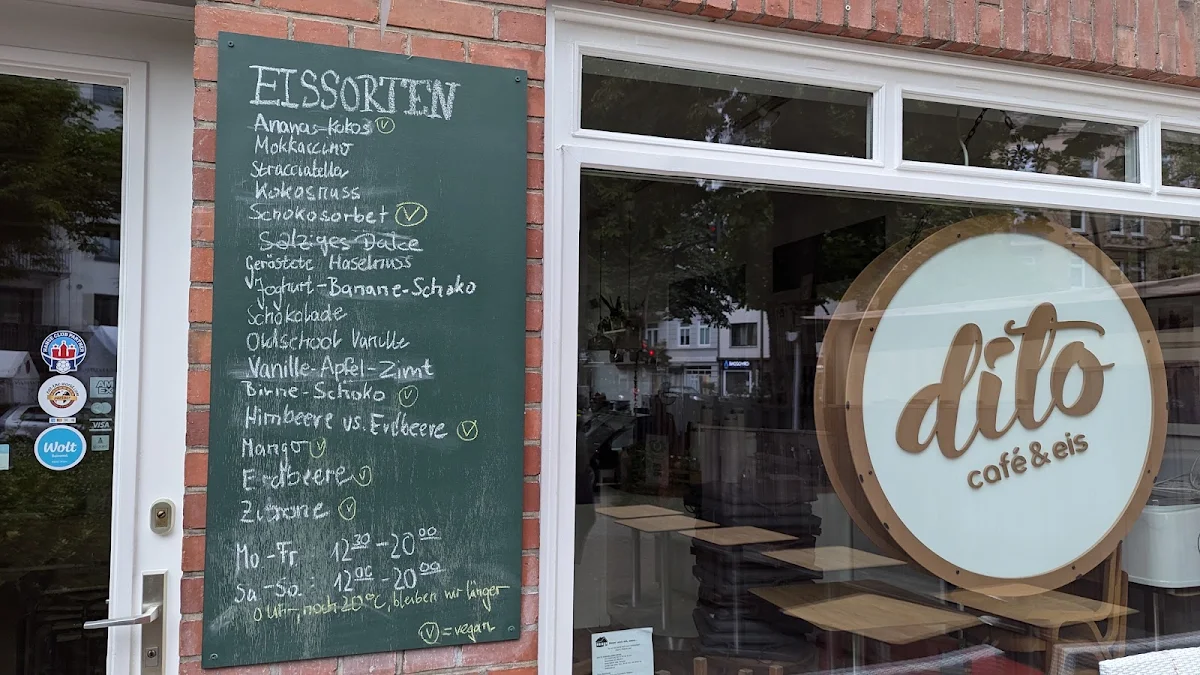 EISSORTEN
Ananas-Kokos V
Mokkaccino
Stracciatella
Kokosnuss
Schokosorbet V
Salziges Dulce
Geröstete Haselnuss
Joghurt-Banane-Schoko
Schokolade
Oldschool Vanille
Vanille-Apfel-Zimt
Birne-Schoko V
Himbeere vs. Erdbeere V
Mango V
Erdbeere V
Zitrone V
Mo-Fr 12 30 - 20 00
Sa-So: 12 00 - 20 00
noch 20°C, bleiben wir länger
V = vegan
Wolt
AM
EX
VISA
dito
café & eis